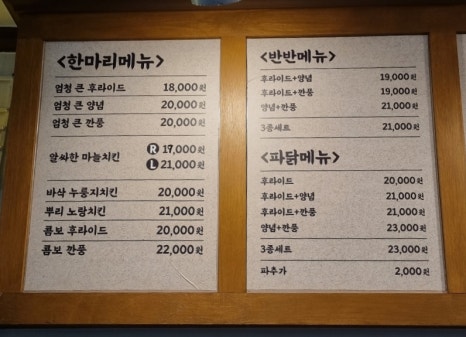 <한마리메뉴>
엄청 큰 후라이드 18,000원
엄청 큰 양념 20,000원
엄청 큰 깐풍 20,000원
알싸한 마늘치킨 R 17,000원
L 21,000원
바삭 누룽지치킨 20,000원
뿌리 노랑치킨 21,000원
콤보 후라이드 20,000원
콤보 깐풍 22,000원
<반반메뉴>
후라이드+양념 19,000원
후라이드+깐풍 19,000원
양념+깐풍 21,000원
3종세트 21,000원
<파닭메뉴>
후라이드 20,000원
후라이드+양념 21,000원
후라이드+깐풍 21,000원
양념+깐풍 23,000원
3종세트 23,000원
파추가 2,000원